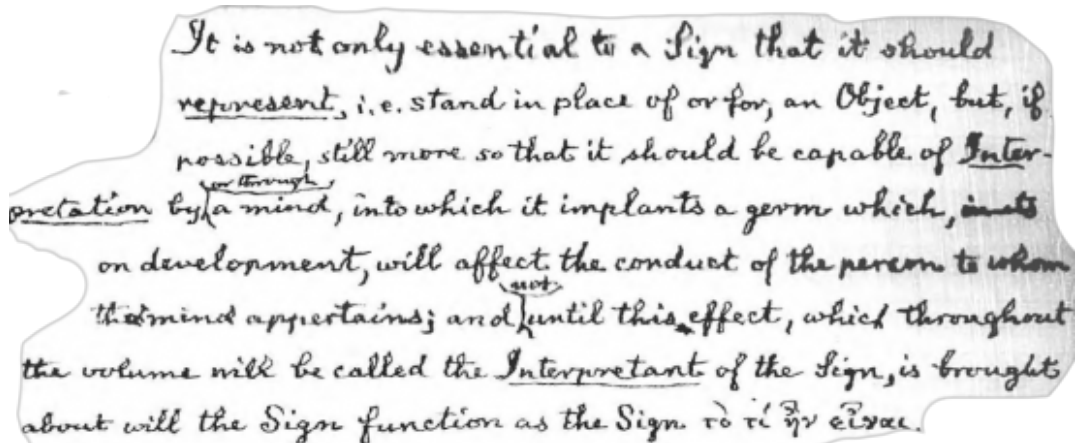 It is not only essential to a Sign that it should
represent, i.e. stand in place of or for, an Object, but, if
possible, still more so that it should be capable of Inter-
or through
pretation by a mind, into which it implants a germ which,
on development, will affect the conduct of the person to whom
not
mind appertains; and until this effect, which throughout
the volume will be called the Interpretant of the Sign, is brought
about will the Sign function as the Sign τὸ τί ἦν εἶναι.